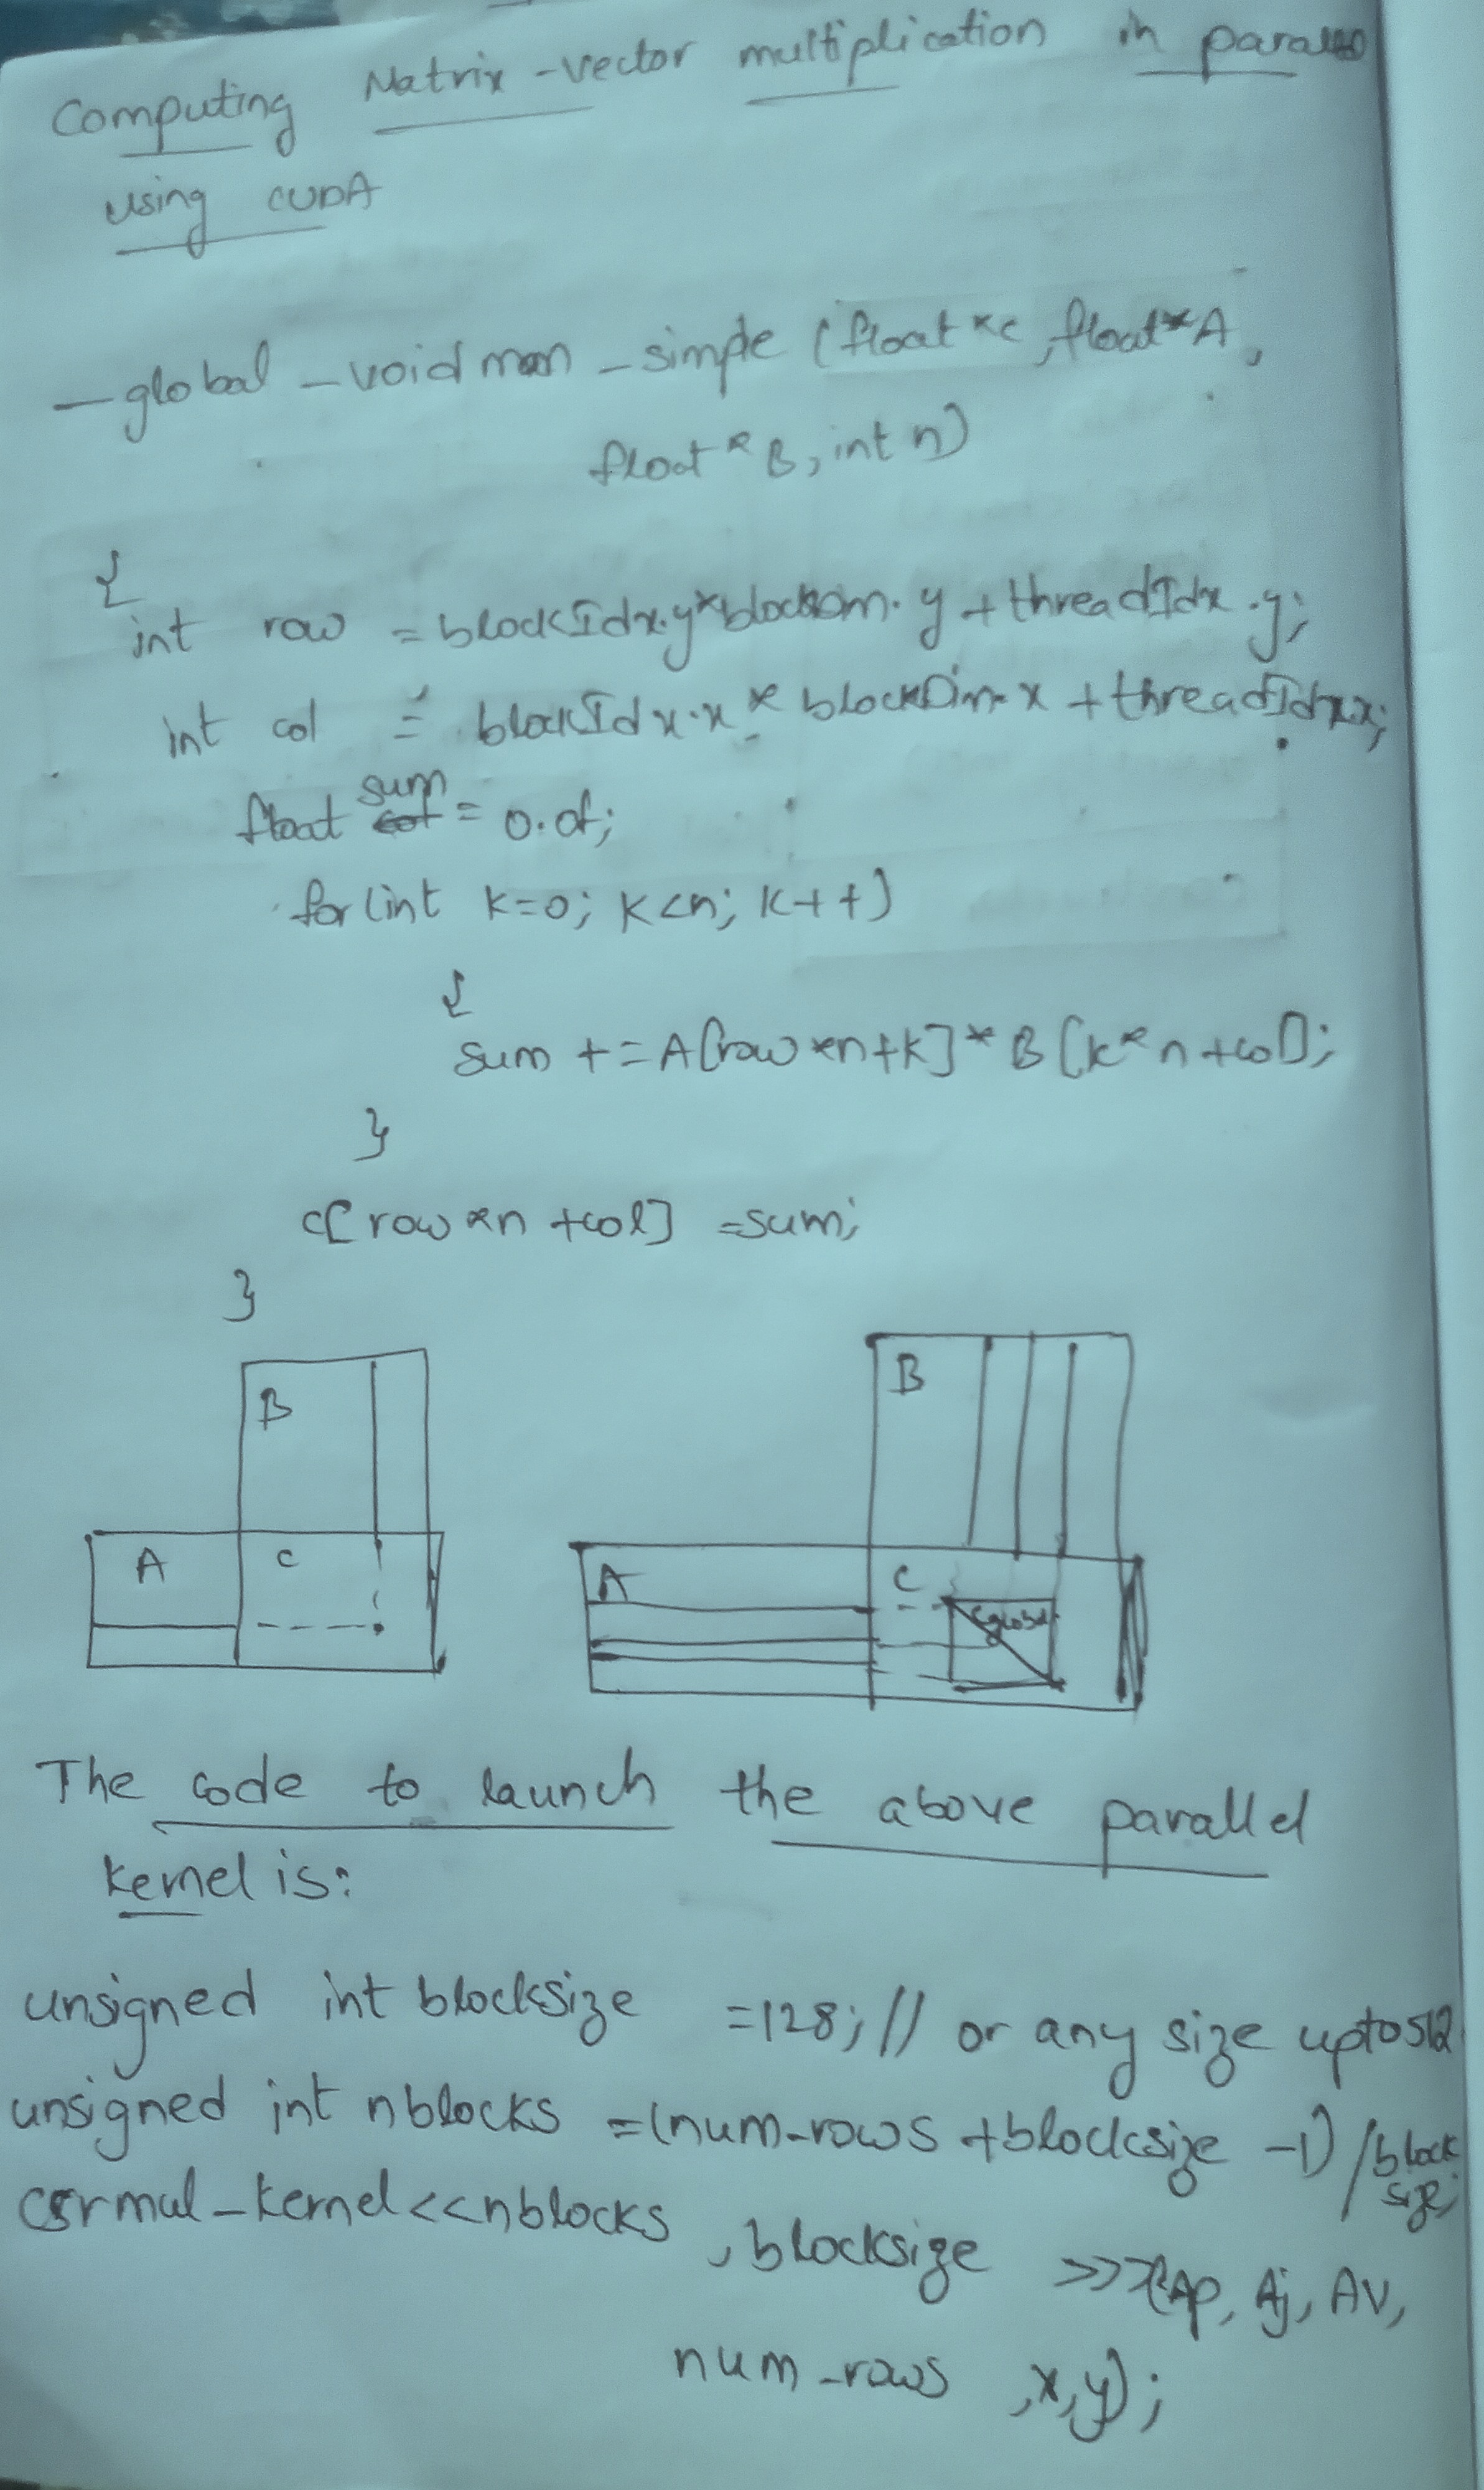 Computing Matrix-vector multiplication in
using CUDA
_global_void mon_simple (float *c, float *A,
float *B, int n)
{
int row = blockIdx.y*blockDim.y + threadIdx.y;
int col = blockIdx.x * blockDim.x + threadIdx.x;
float sum = 0.0f;
for(int k=0; k<n; k++)
{
sum += A[row *n+k] * B[k*n+col];
}
c[row *n +col] =sum;
}
B
B
A
C
A
C
The code to launch the above parallel
kernel is:
unsigned int blocksize =128; // or any size upto 512
unsigned int nblocks =(num_rows +blocksize -1) /block
size;
csrmul_kernel<<nblocks, blocksize >>>(Ap, Aj, AV,
num_rows ,x,y);